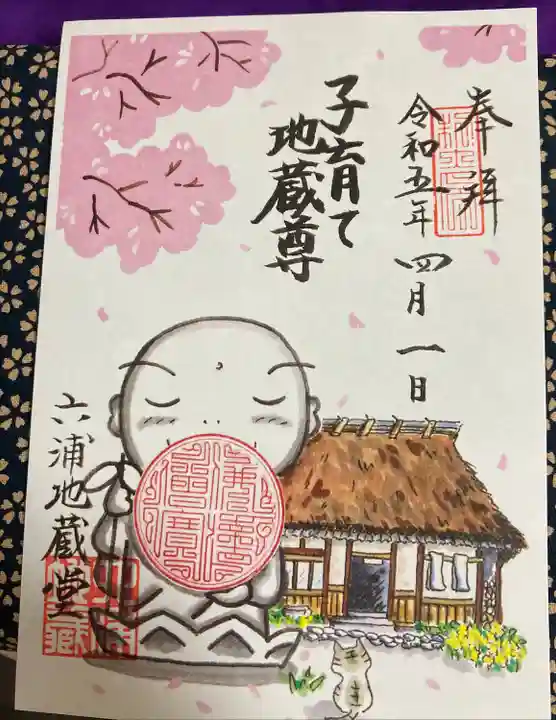 奉拝
令和五年四月一日
子育て
地蔵尊
六浦地蔵堂